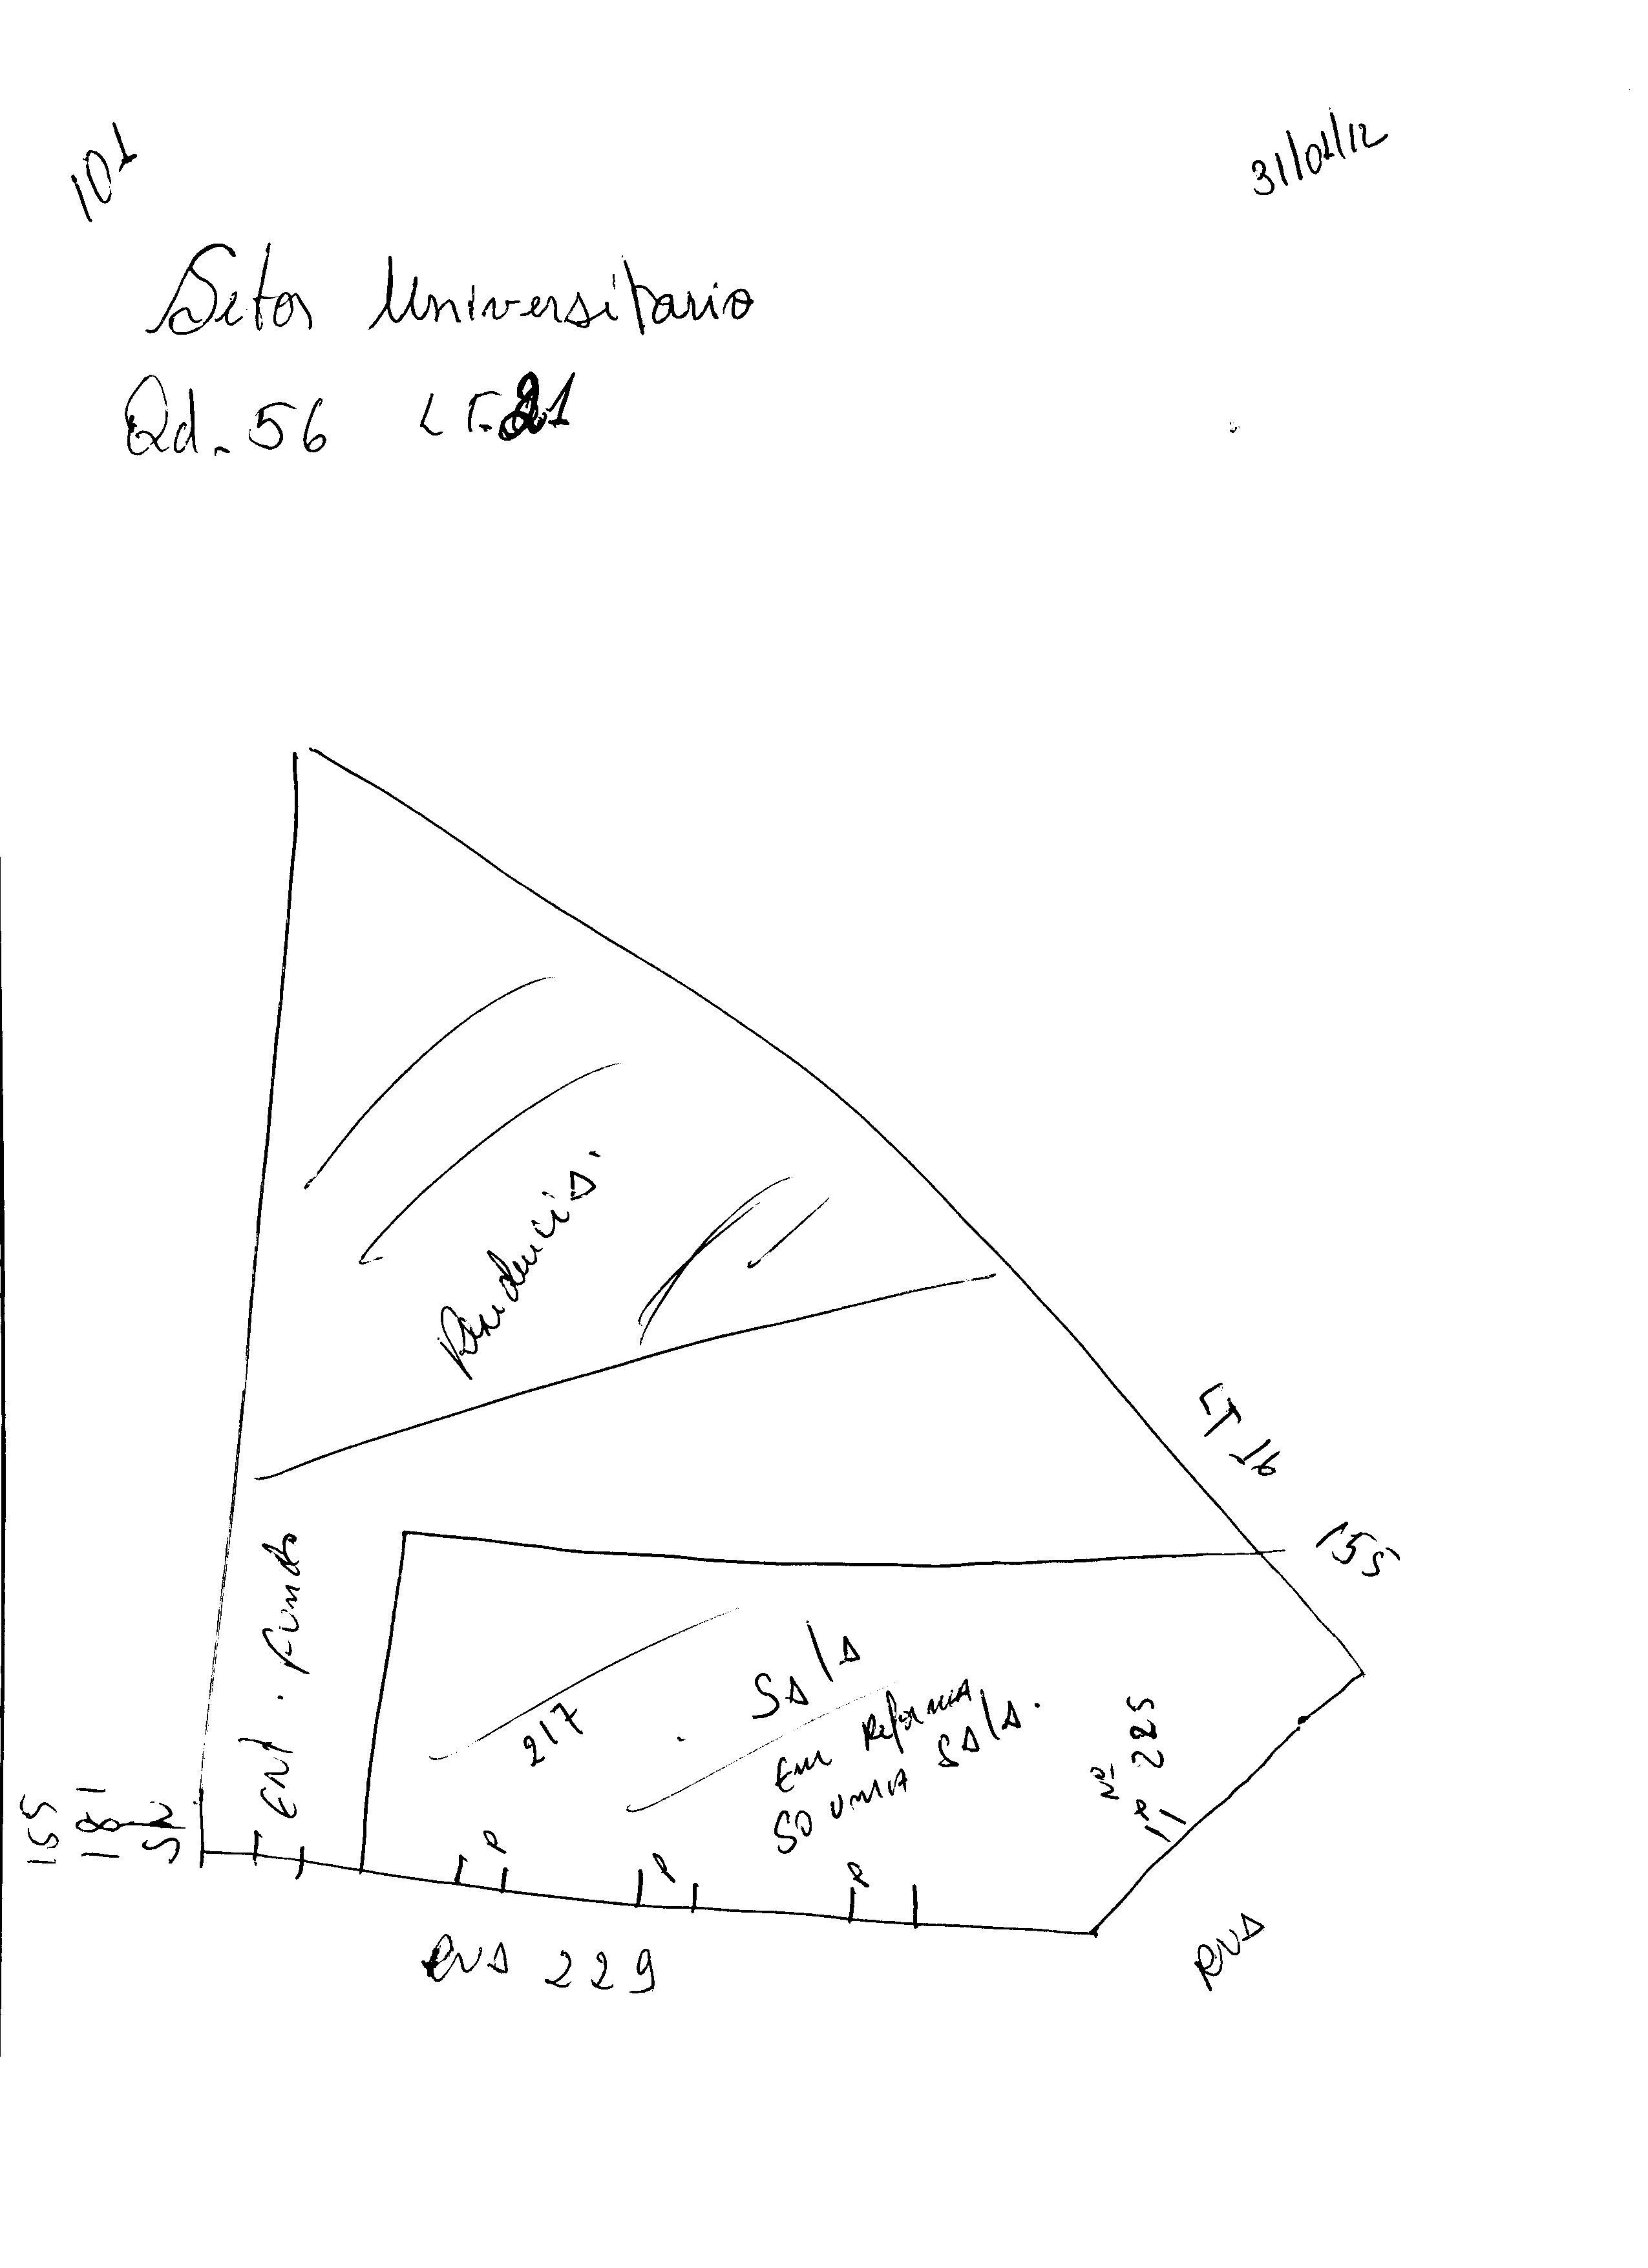 101
31/01/12
Setor Universitario
Qd. 56 LT. 21
LT 16
155
Ent. Fundo
217
Sala
Em Reforma
SO UMA SALA.
Nº 225
P
P
P
P
155
181
RUA 229
RUA